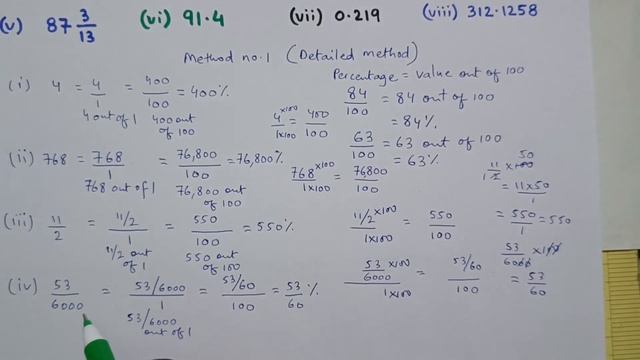 (v) 87 3/13 (vi) 91.4 (vii) 0.219 (viii) 312.1258
Method no.1 (Detailed method)
Percentage = value out of 100
(i) 4 = 4/1 = 400/100 = 400%
4 out of 1 400 out of 100
4×100/1×100 = 400/100
84/100 = 84 out of 100
= 84%
63/100 = 63 out of 100
= 63%
(ii) 768 = 768/1 = 76,800/100 = 76,800%
768 out of 1 76,800 out of 100
768×100/1×100 = 76800/100
11/2 × 100 50
= 11×50/1
= 550/1 = 550
(iii) 11/2 = 11/2/1 = 550/100 = 550%
11/2 out of 1 550 out of 100
11/2×100/1×100 = 550/100
(iv) 53/6000 = 53/6000/1 = 53/60/100 = 53/60 %
53/6000 out of 1
53/6000×100/1×100 = 53/60/100
53/6000 × 100
= 53/60